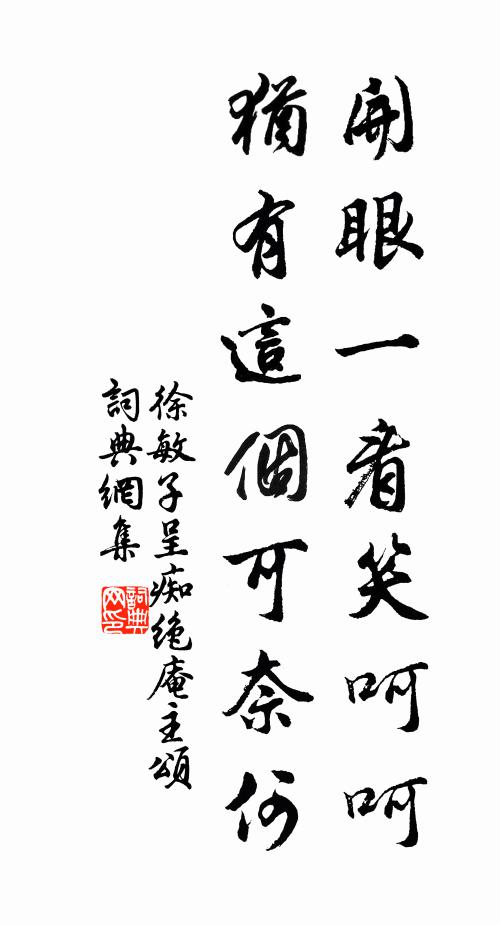 開眼一看笑呵呵
猶有這個可奈何
徐敏子呈痴絶庵主頌
詞典網集
詞典网印